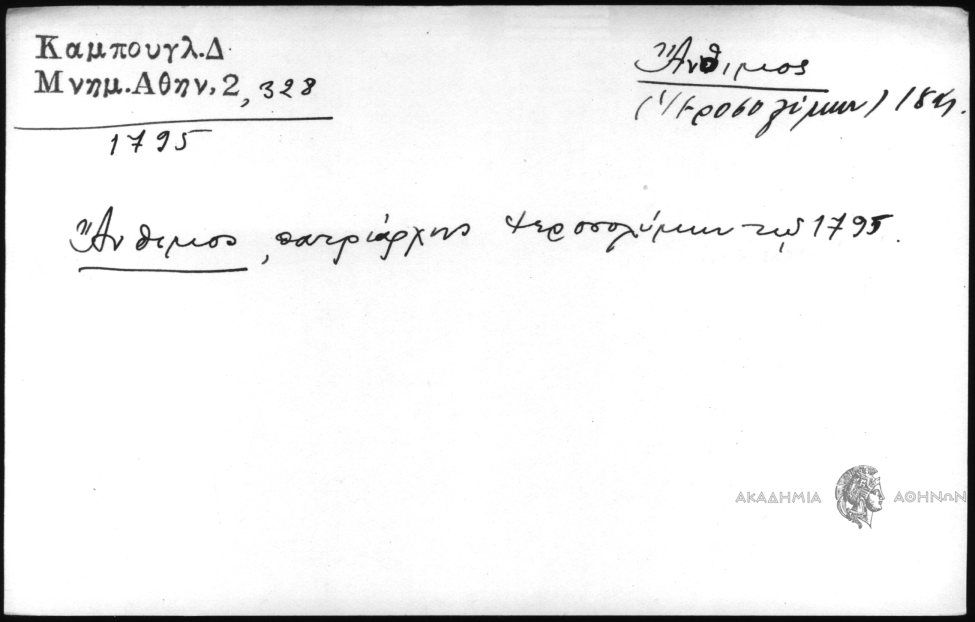 Καμπουγλ.Δ
Μνημ.Αθην.2, 328
1795
Ἄνθιμος
(Ἱεροσολύμων) 18
Ἄνθιμος, πατριάρχης Ἱεροσολύμων τῷ 1795.
ΑΚΑΔΗΜΙΑ ΑΘΗΝΩΝ